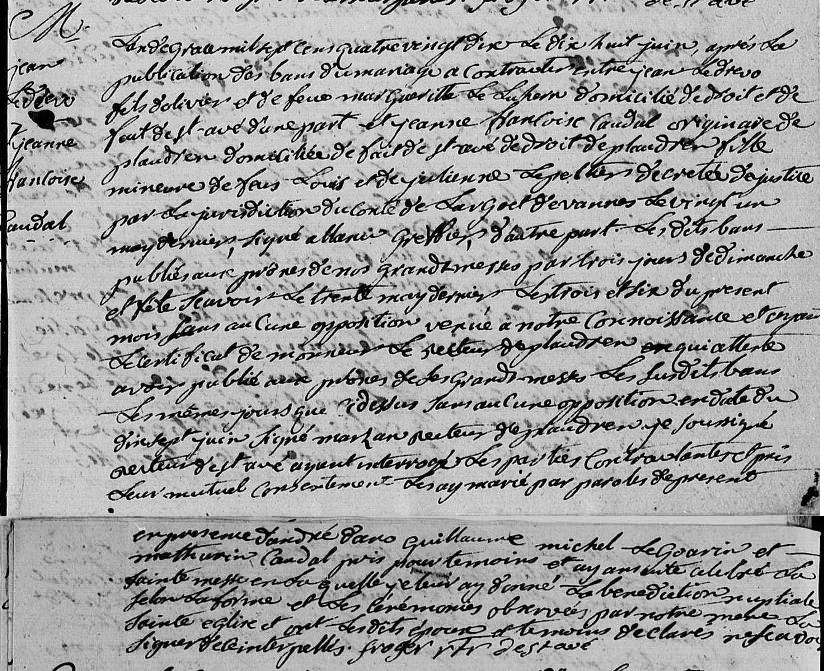 M
jean
Le drevo
&
jeanne
francoise
Caudal
L'an de grace mil sept cens quatre vingt dix Le dix huit juin, après La
publication des bans du mariage a Contracter entre jean Le drevo
fils d'olivier et de feue margueritte Le Luherne domicilié de droit et de
fait de st avé d'une part et jeanne francoise Caudal originaire de
plaudren domiciliée de fait de st avé de droit de plaudren fille
mineure de feus Louis et de julienne Lepelters decretée de justice
par La jurisdiction du Comté de Largoet de vannes Le vingt un
may dernier, Signé allanic Greffier, d'autre part. Les dits bans
publiés aux prônes de nos grandes messes par trois jours de dimanche
et fête Scavoir Le trente may dernier Les trois et six du present
mois sans aucune opposition venue a notre Connoissance et
Le Certificat de monsieur Le recteur de plaudren qui atteste
avoir publié aux prônes de ses grandes messes Les susdits bans
Les mêmes jours que Cidessus sans aucune opposition en date du
dix sept juin Signé marzan recteur de plaudren je soussigné
recteur de st avé ayant interrogé Les parties Contractantes et pris
Leur mutuel Consentement Les ay marié par paroles de present
en presence d'andré dano guillaume michel Le Gourin et
mathurin Caudal pris pour temoins et ay ensuite célébré La
sainte messe en La quelle je leur ay donné La benediction nuptiale
selon La forme et Les Cérémonies observées par notre mere La
sainte eglise et ont Les dits époux et temoins declarés ne scavoir
signer de Ce interpellés. froger rtr de st avé